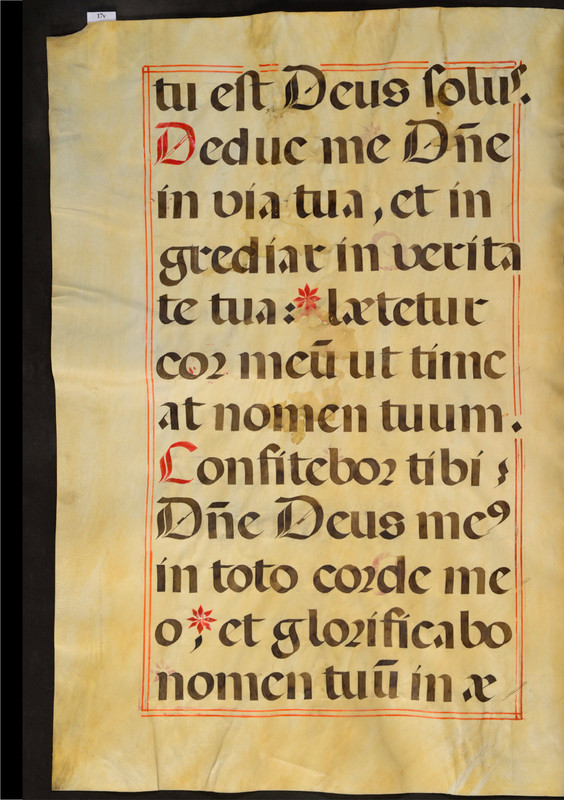 17v
tu est Deus solus.
Deduc me Dñe
in via tua, et in
grediar in verita
te tua: * lætetur
cor meũ ut time
at nomen tuum.
Confitebor tibi ;
Dñe Deus meꝰ
in toto corde me
o, * et glorificabo
nomen tuũ in æ